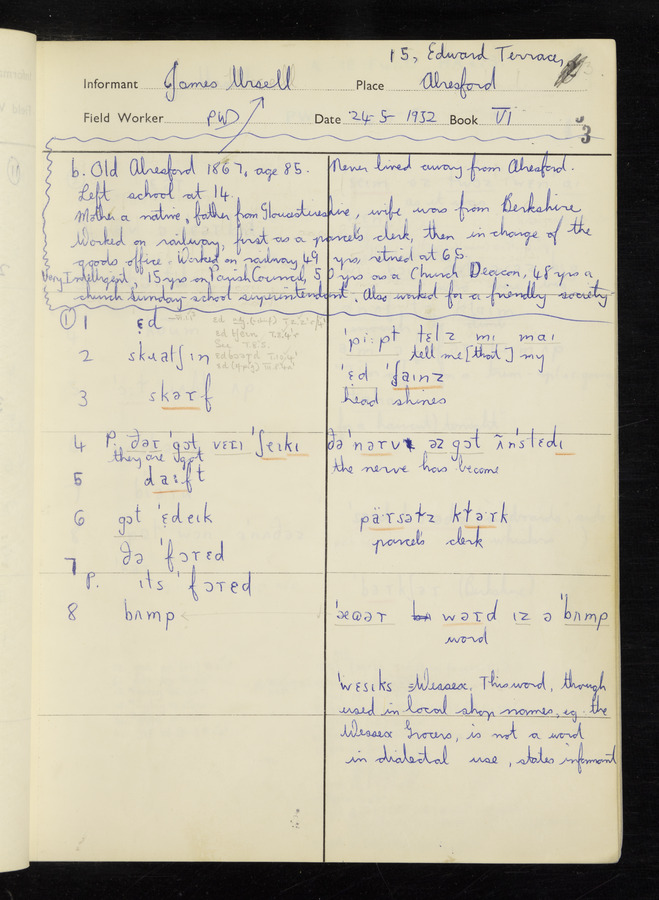 15, Edward Terrace,
Informant James Ursell Place Alresford
Field Worker PWD Date 24-5-1952 Book VI
3
b. Old Alresford 1867, age 85. Never lived away from Alresford.
Left school at 14.
Mother a native, father from Gloucestershire, wife was from Berkshire
Worked on railway, first as a parcels clerk, then in charge of the
goods office. Worked on railway 49 yrs, retired at 65.
Very Intelligent, 15 yrs on Parish Council, 50 yrs as a Church Deacon, 48 yrs a
church Sunday-school superintendent. Also worked for a friendly society
① 1 ɛd
'pi:pt tɛlz mɪ maɪ
tell me [that] my
2 skʌatʃɪn
'ɛd 'ʃaɪnz
head shines
3 skəɾf
4 P. ðəɾ 'gɔt vɛɾɪ 'ʃɛɪkɪ
they are got
ðə 'nəɾv əz gɔt ĩn'stɛdɪ
the nerve has become
5 da:ft
6 gɔt 'ɛdeɪk
päɾsəɫz kɫəɾk
parcels clerk
ðə 'fɔɾɛd
7 P. ɪts 'fɔɾɛd
8 bʌmp
wəɾd ɪz ə 'bʌmp
word
'wɛsɪks = Wessex. This word, though
used in local shop names, eg. the
Wessex Grocers, is not a word
in dialectal use, states informant